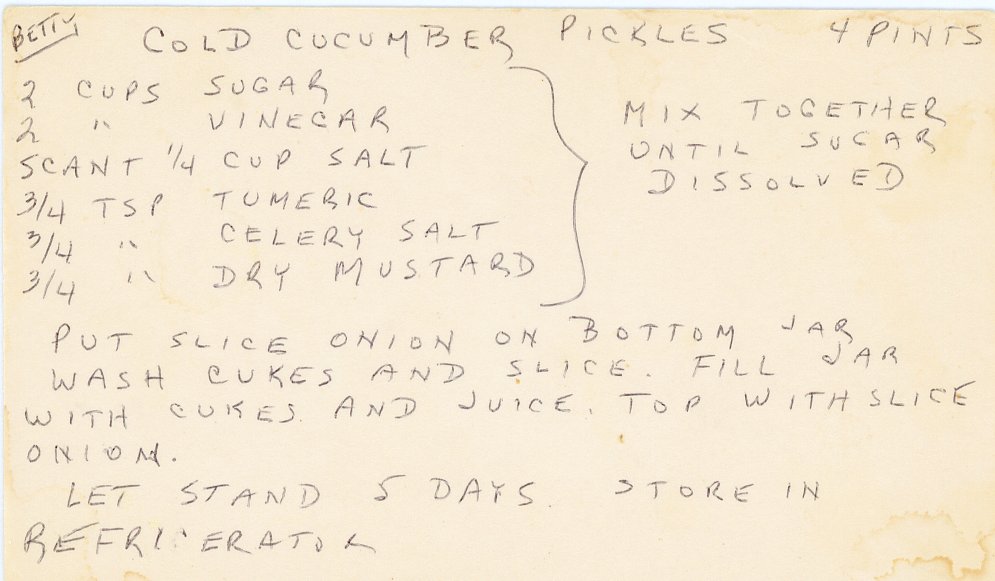 BETTY
COLD CUCUMBER PICKLES 4 PINTS
2 CUPS SUGAR
2 " VINEGAR
SCANT 1/4 CUP SALT
3/4 TSP TUMERIC
3/4 " CELERY SALT
3/4 " DRY MUSTARD
MIX TOGETHER
UNTIL SUGAR
DISSOLVED
PUT SLICE ONION ON BOTTOM JAR
WASH CUKES AND SLICE. FILL JAR
WITH CUKES AND JUICE. TOP WITH SLICE
ONION.
LET STAND 5 DAYS. STORE IN
REFRIGERATOR